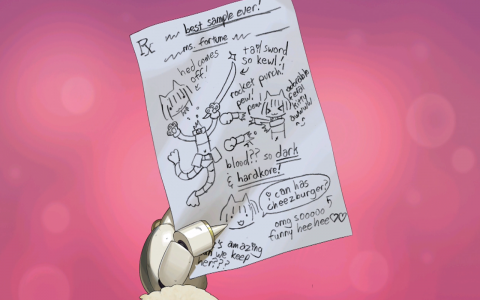 Rx
best sample ever!
ms. fortune
hed comes
off!
tail/sword
so kewl!
rocket punch!
pew!
pew!
adorable
feral
kitty
blood?? so dark
& hardkore!
i can has
cheezburger?
omg sooooo
funny hee hee
it's amazing
can we keep
her???